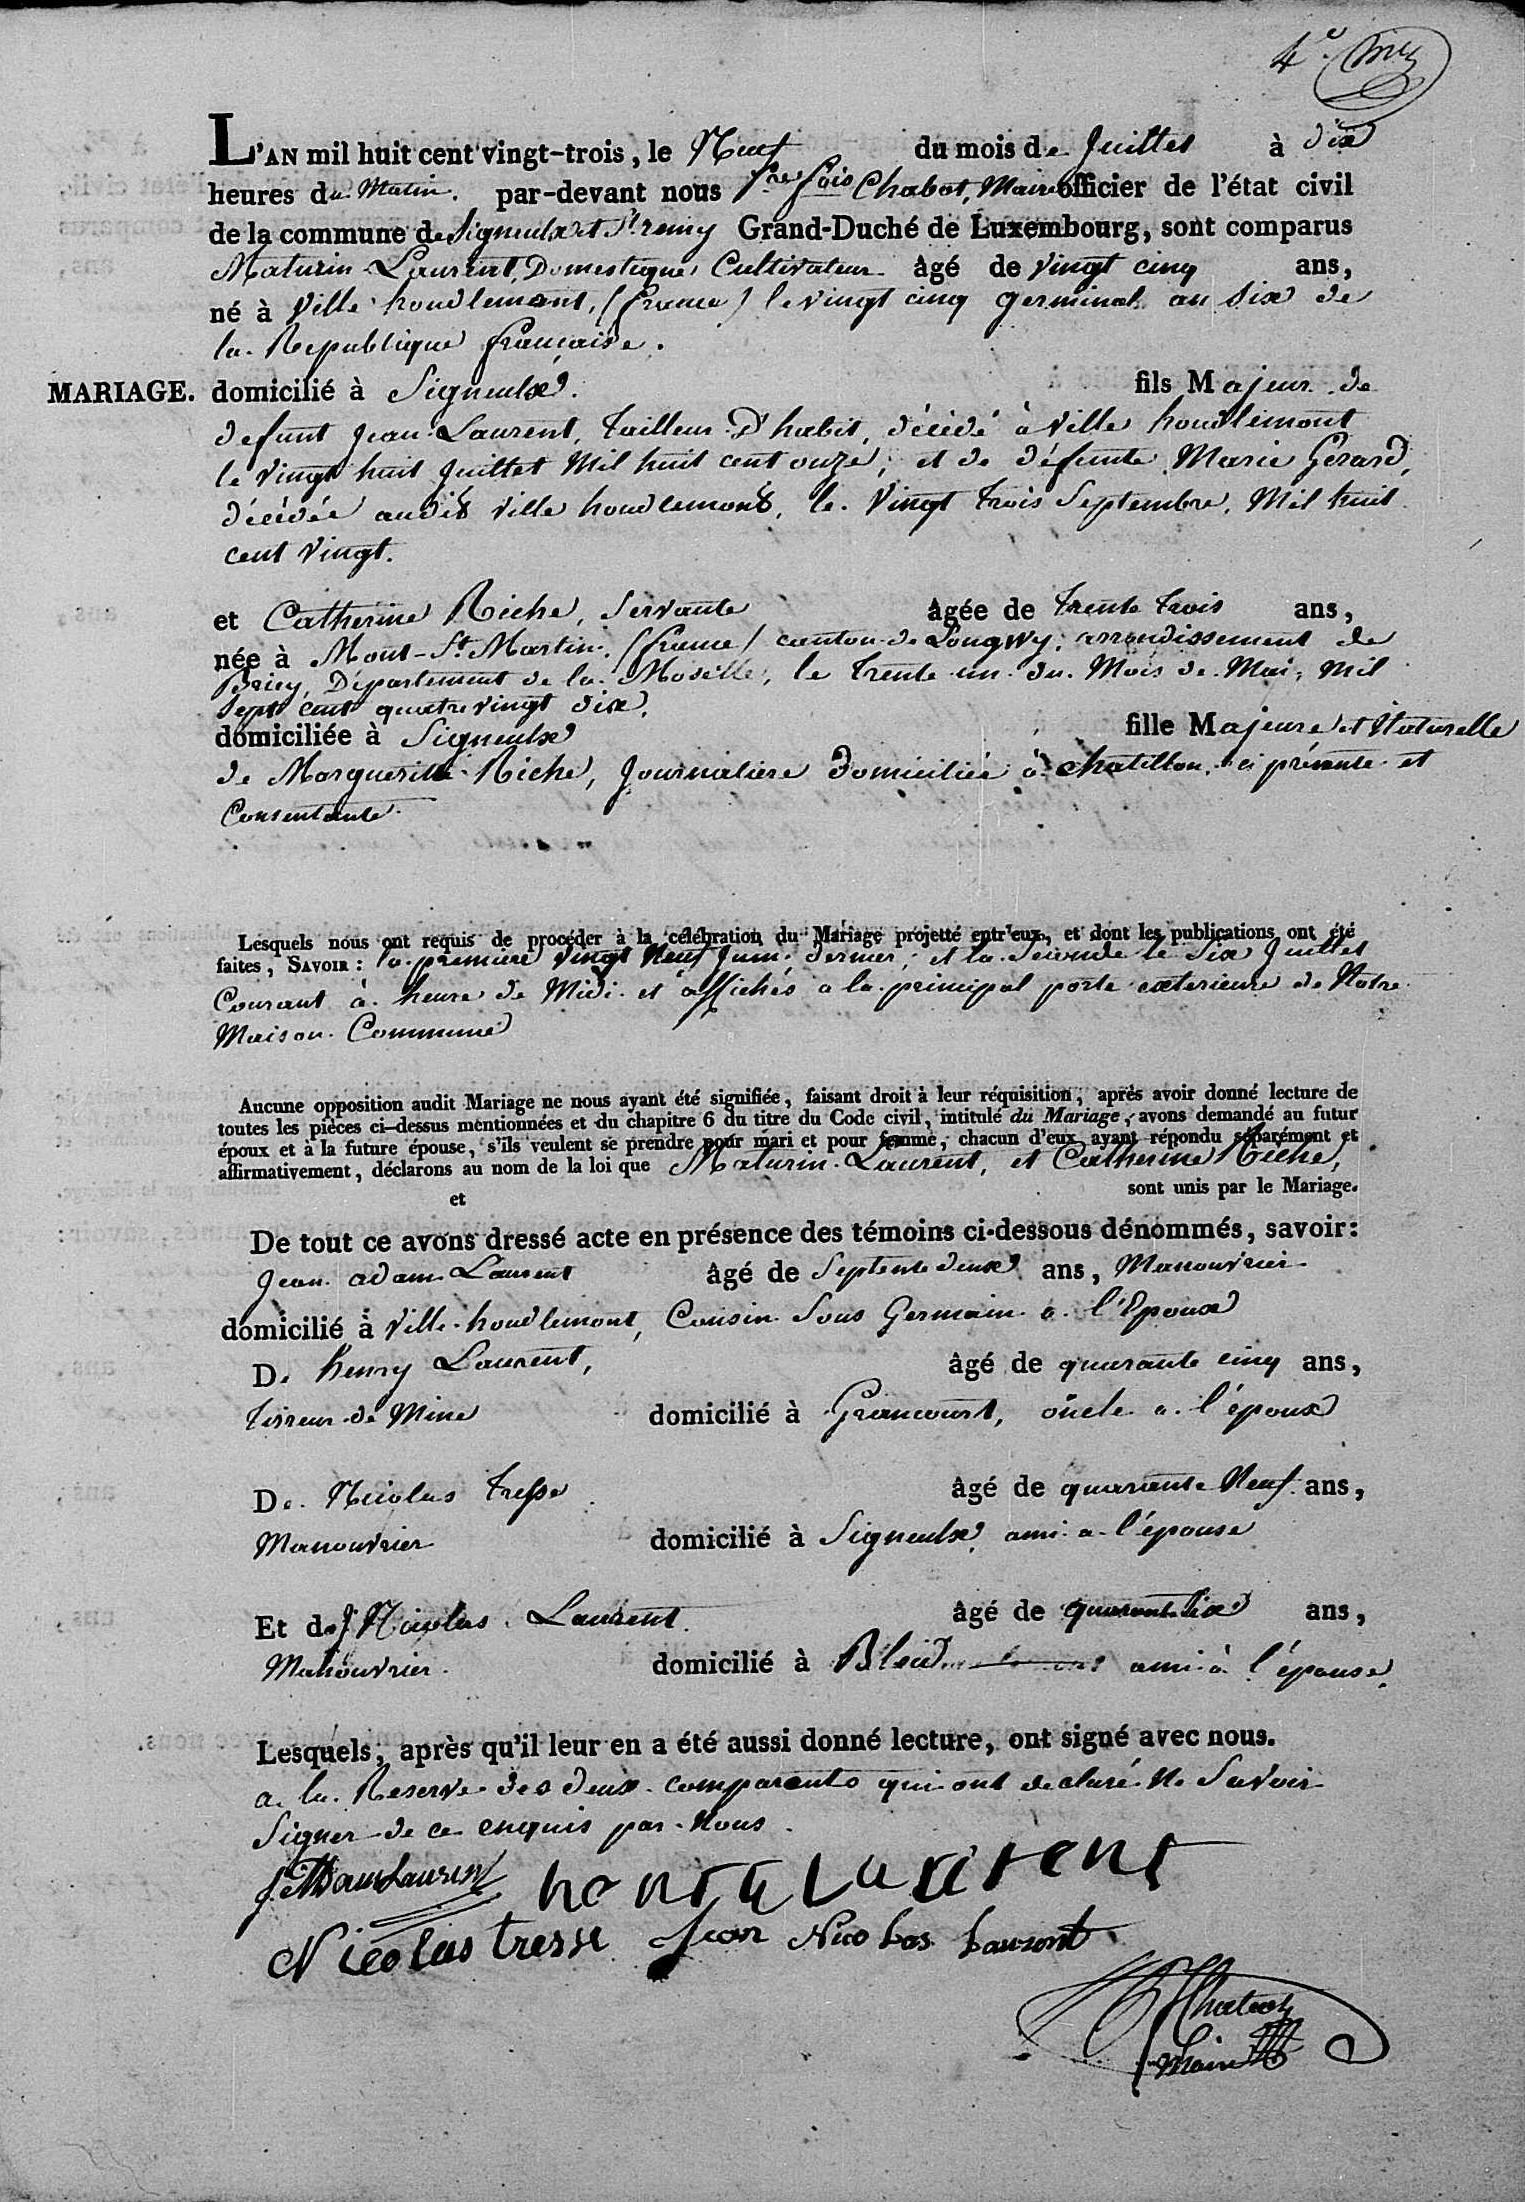 4e
L'AN mil huit cent vingt-trois, le Neuf du mois de Juillet à dix
heures du Matin. par-devant nous Chabot, Maire officier de l'état civil
de la commune de Signeulx et St. remy Grand-Duché de Luxembourg, sont comparus
Maturin Laurent, Domestique Cultivateur âgé de vingt cinq ans,
né à Ville houdlemont, (france) le vingt cinq germinal an six de
la Republique française.
MARIAGE. domicilié à Signeulx. fils Majeur de
defunt Jean Laurent, tailleur D'habit, décédé à Ville houdlemont
le vingt huit Juillet Mil huit cent onze, et de défunte Marie Gerard,
décédée audit Ville houdlemont, le Vingt trois Septembre, Mil huit
cent vingt.
et Catherine Riche, Servante âgée de trente trois ans,
née à Mont-St. Martin, (france) canton de Longwy, arrondissement de
Briey, Département de la Moselle, le trente un du Mois de Mai, Mil
Sept cent quatre vingt dix.
domiciliée à Signeulx fille Majeure et Naturelle
de Marguerite Riche, Journaliere domiciliée à chatillon, ci présente et
Consentante.
Lesquels nous ont requis de procéder à la célébration du Mariage projetté entr'eux, et dont les publications ont été
faites, SAVOIR : la premiere vingt Neuf Juin dernier, et la Seconde le Six Juillet
Courant à heure de Midi et affichés a la principal porte exterieure de Notre
Maison Commune
Aucune opposition audit Mariage ne nous ayant été signifiée, faisant droit à leur réquisition, après avoir donné lecture de
toutes les pièces ci-dessus mentionnées et du chapitre 6 du titre du Code civil, intitulé du Mariage, avons demandé au futur
époux et à la future épouse, s'ils veulent se prendre pour mari et pour femme, chacun d'eux ayant répondu séparément et
affirmativement, déclarons au nom de la loi que Maturin Laurent, et Catherine Riche,
et sont unis par le Mariage.
De tout ce avons dressé acte en présence des témoins ci-dessous dénommés, savoir:
Jean adam Laurent âgé de Septente deux ans, Manouvrier
domicilié à Ville houdlemont, Cousin Sous Germain a l'Epoux
De henry Laurent, âgé de quarante cinq ans,
tireur de Mine domicilié à Grancourt, oncle a l'époux
De Nicolas tresse âgé de quarante Neuf ans,
Manouvrier domicilié à Signeulx, ami a l'épouse
Et de J Nicolas Laurent âgé de quarante six ans,
Manouvrier domicilié à Bleid ami à l'épouse,
Lesquels, après qu'il leur en a été aussi donné lecture, ont signé avec nous.
a la Reserve des deux comparents qui ont declaré Ne Savoir
Signer de ce enquis par Nous.
J Adam Laurent henry Laurent
Nicolas tresse Jean Nicolas Laurent
Chabot
Maire